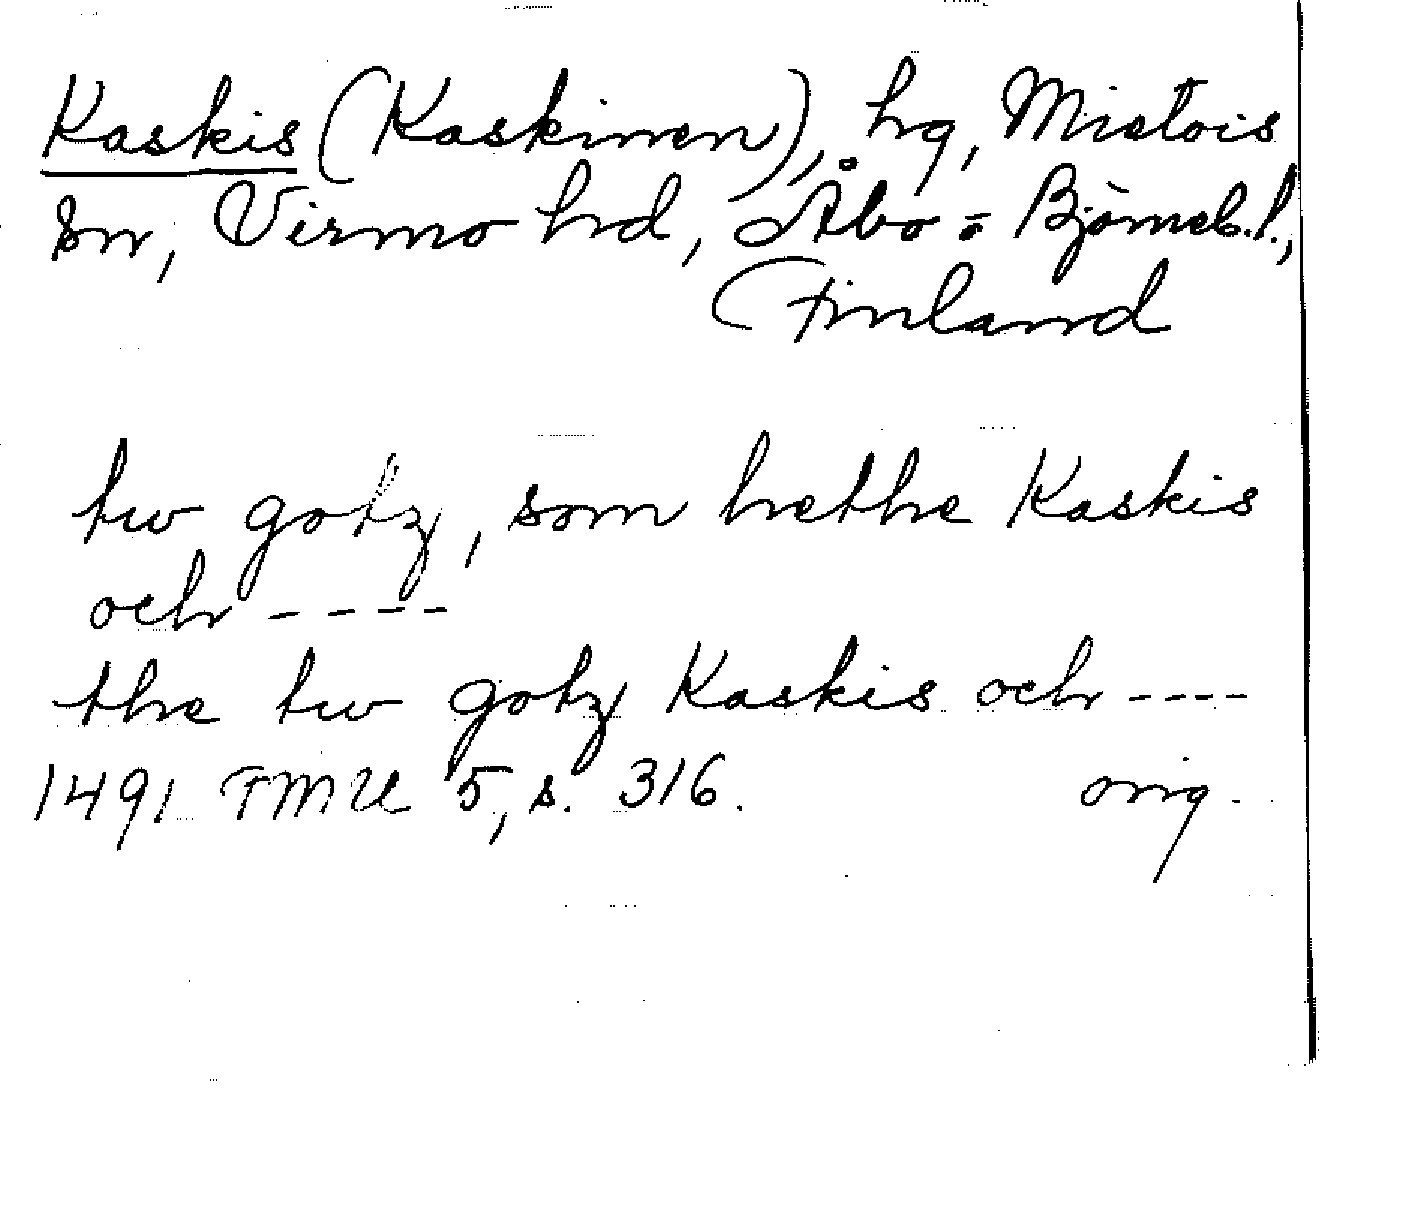 Kaskis (Kaskinen), hg, Mietois
sn, Virmo hd, Åbo = Björneb. l.,
Finland
tw gotz, som hethe Kaskis
och ----
the tw gotz Kaskis och ----
1491 FMU 5, s. 316. orig.